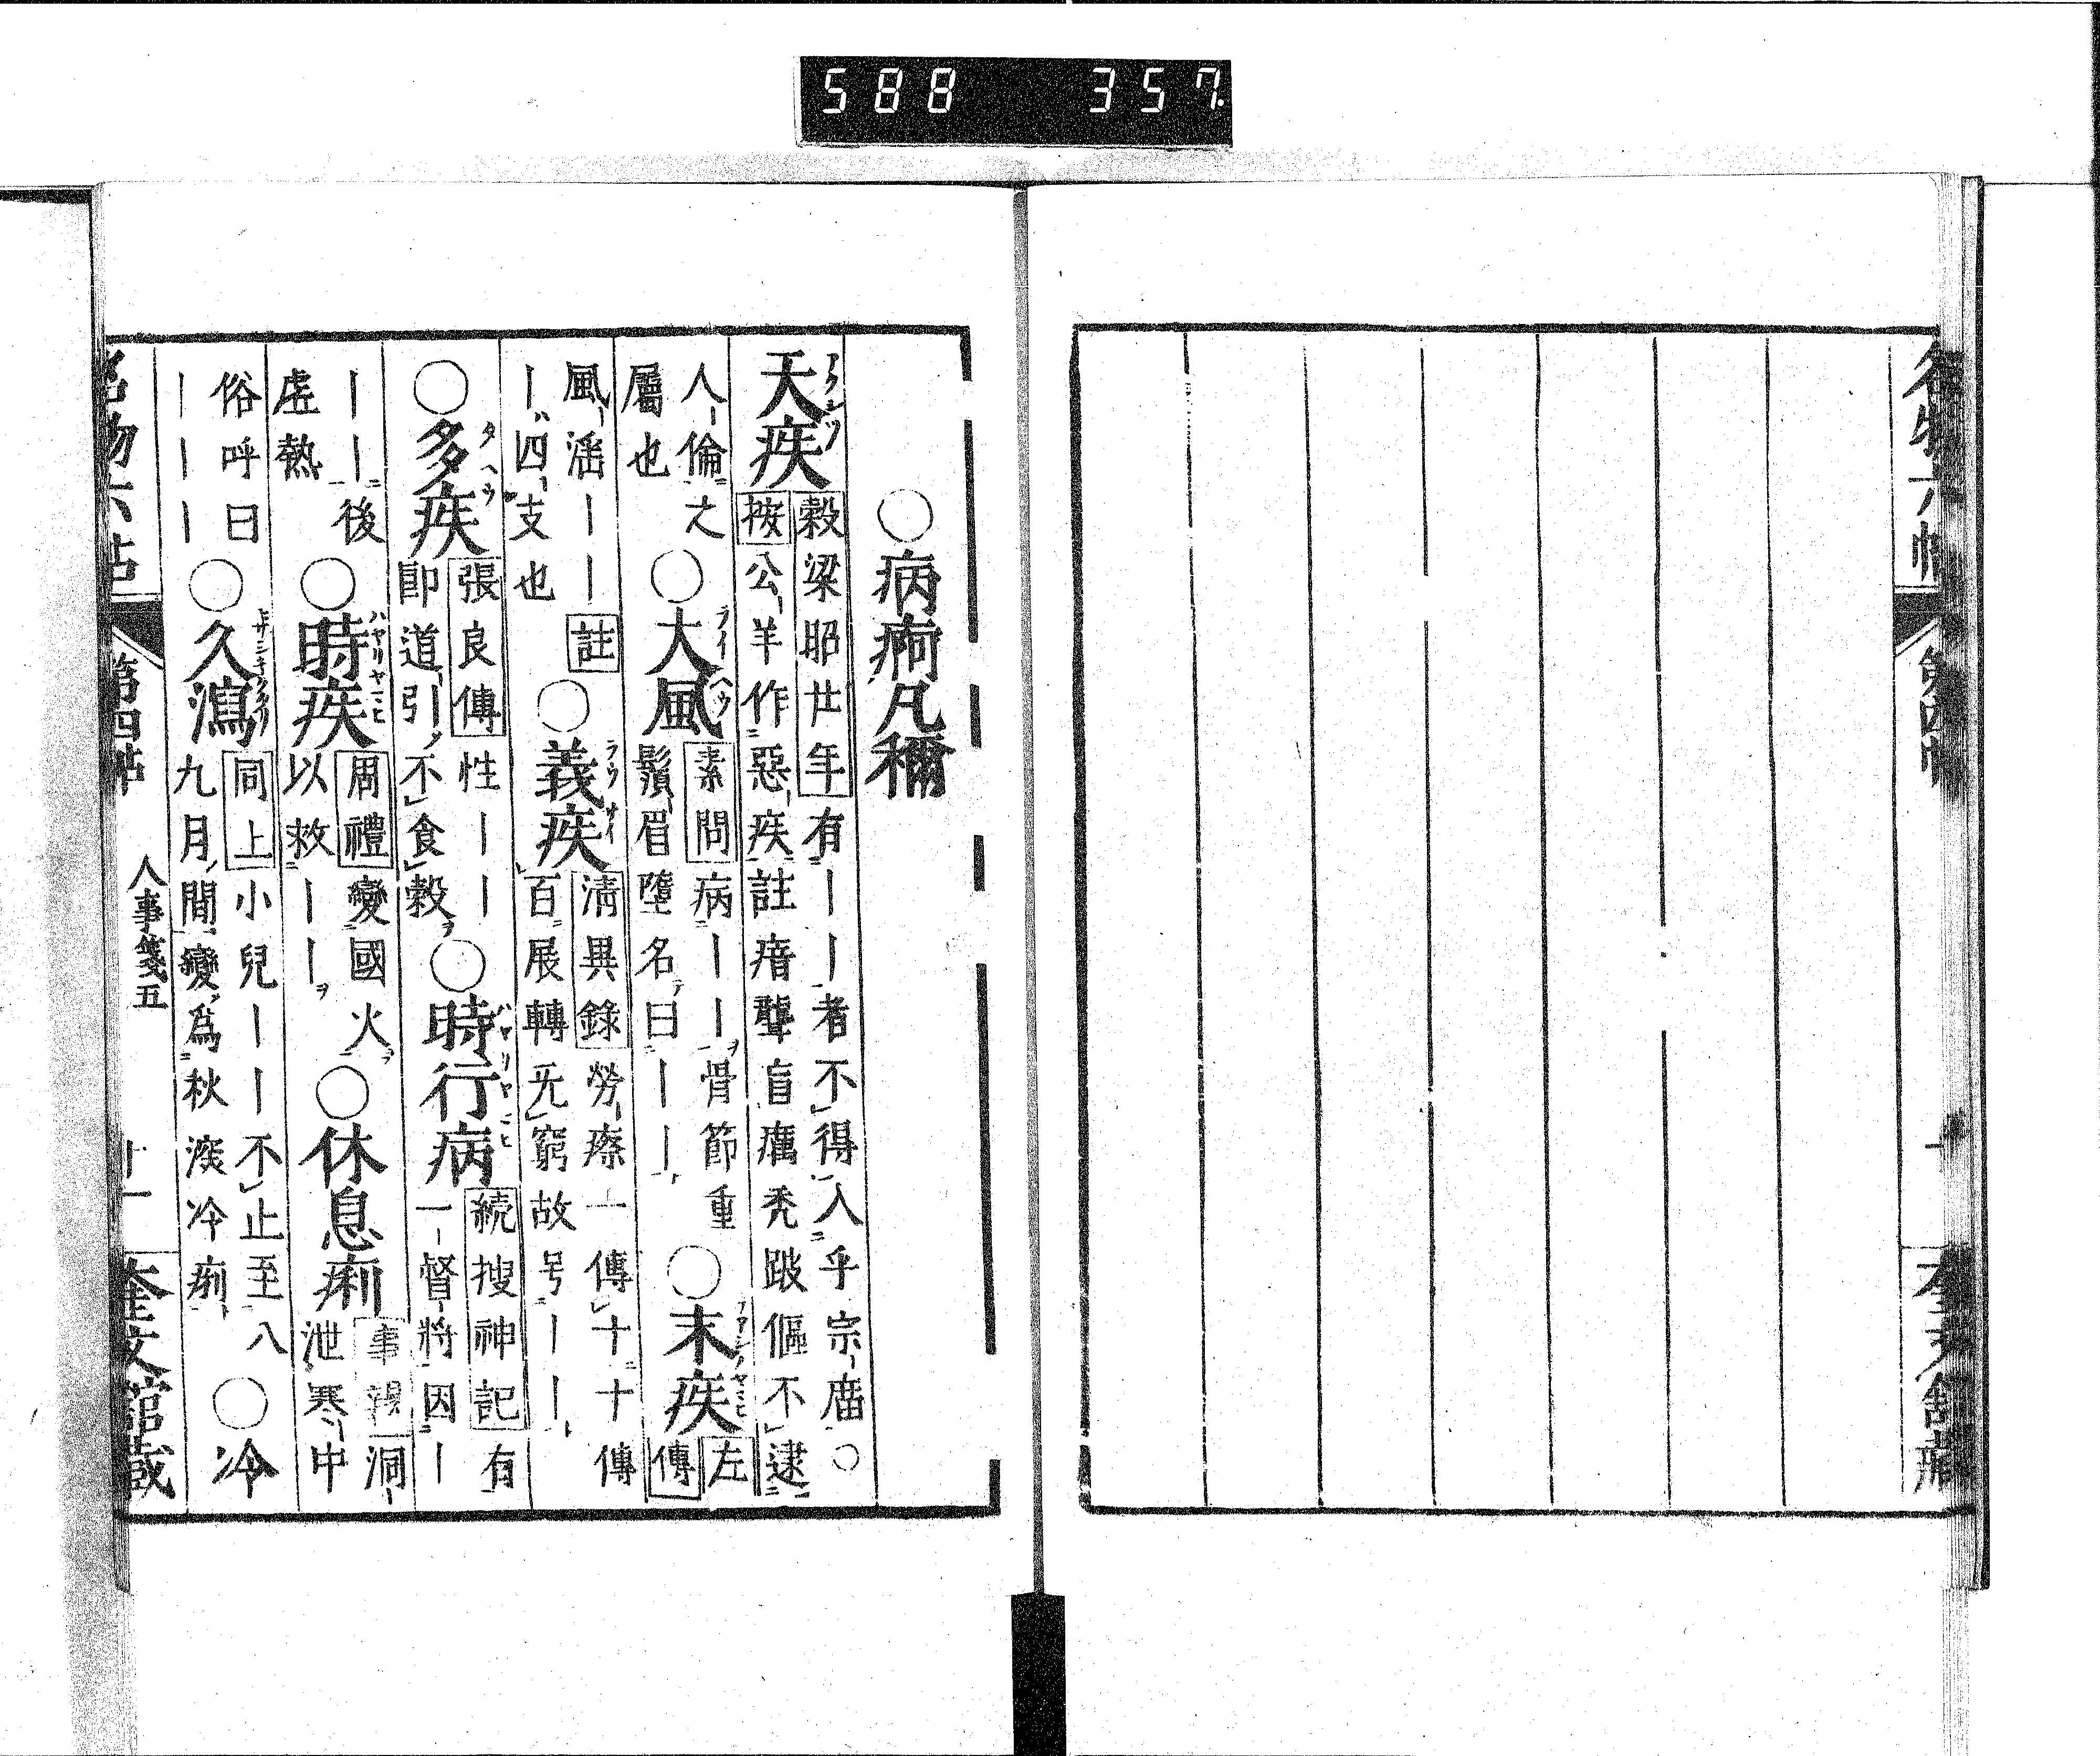 588 357
名物六帖 第四帖 奎文館藏
○病痾凡稱
天疾 穀梁昭廿年 有｜｜者不得入乎宗廟○
按 公羊作惡疾註瘖聾盲癘秃跛傴不逮
人倫之
屬也
○大風 素問 病｜｜骨節重
鬚眉墮名曰｜｜
○末疾 左
傳
風淫｜｜註
｜四支也
○義疾 清異錄 勞瘵一傳十十傳
百展轉无窮故号｜｜
○多疾 張良傳 性｜｜
即道引不食穀
○時行病 続搜神記 有
一督將因｜
｜｜後
虛熱
○時疾 周禮 變國火
以救｜｜
○休息痢 洞
泄寒中
俗呼曰
｜｜｜
○久瀉 同上 小兒｜｜不止至八
九月間變爲秋深冷痢
○冷
名物六帖 第四帖 人事箋五 十一 奎文館藏